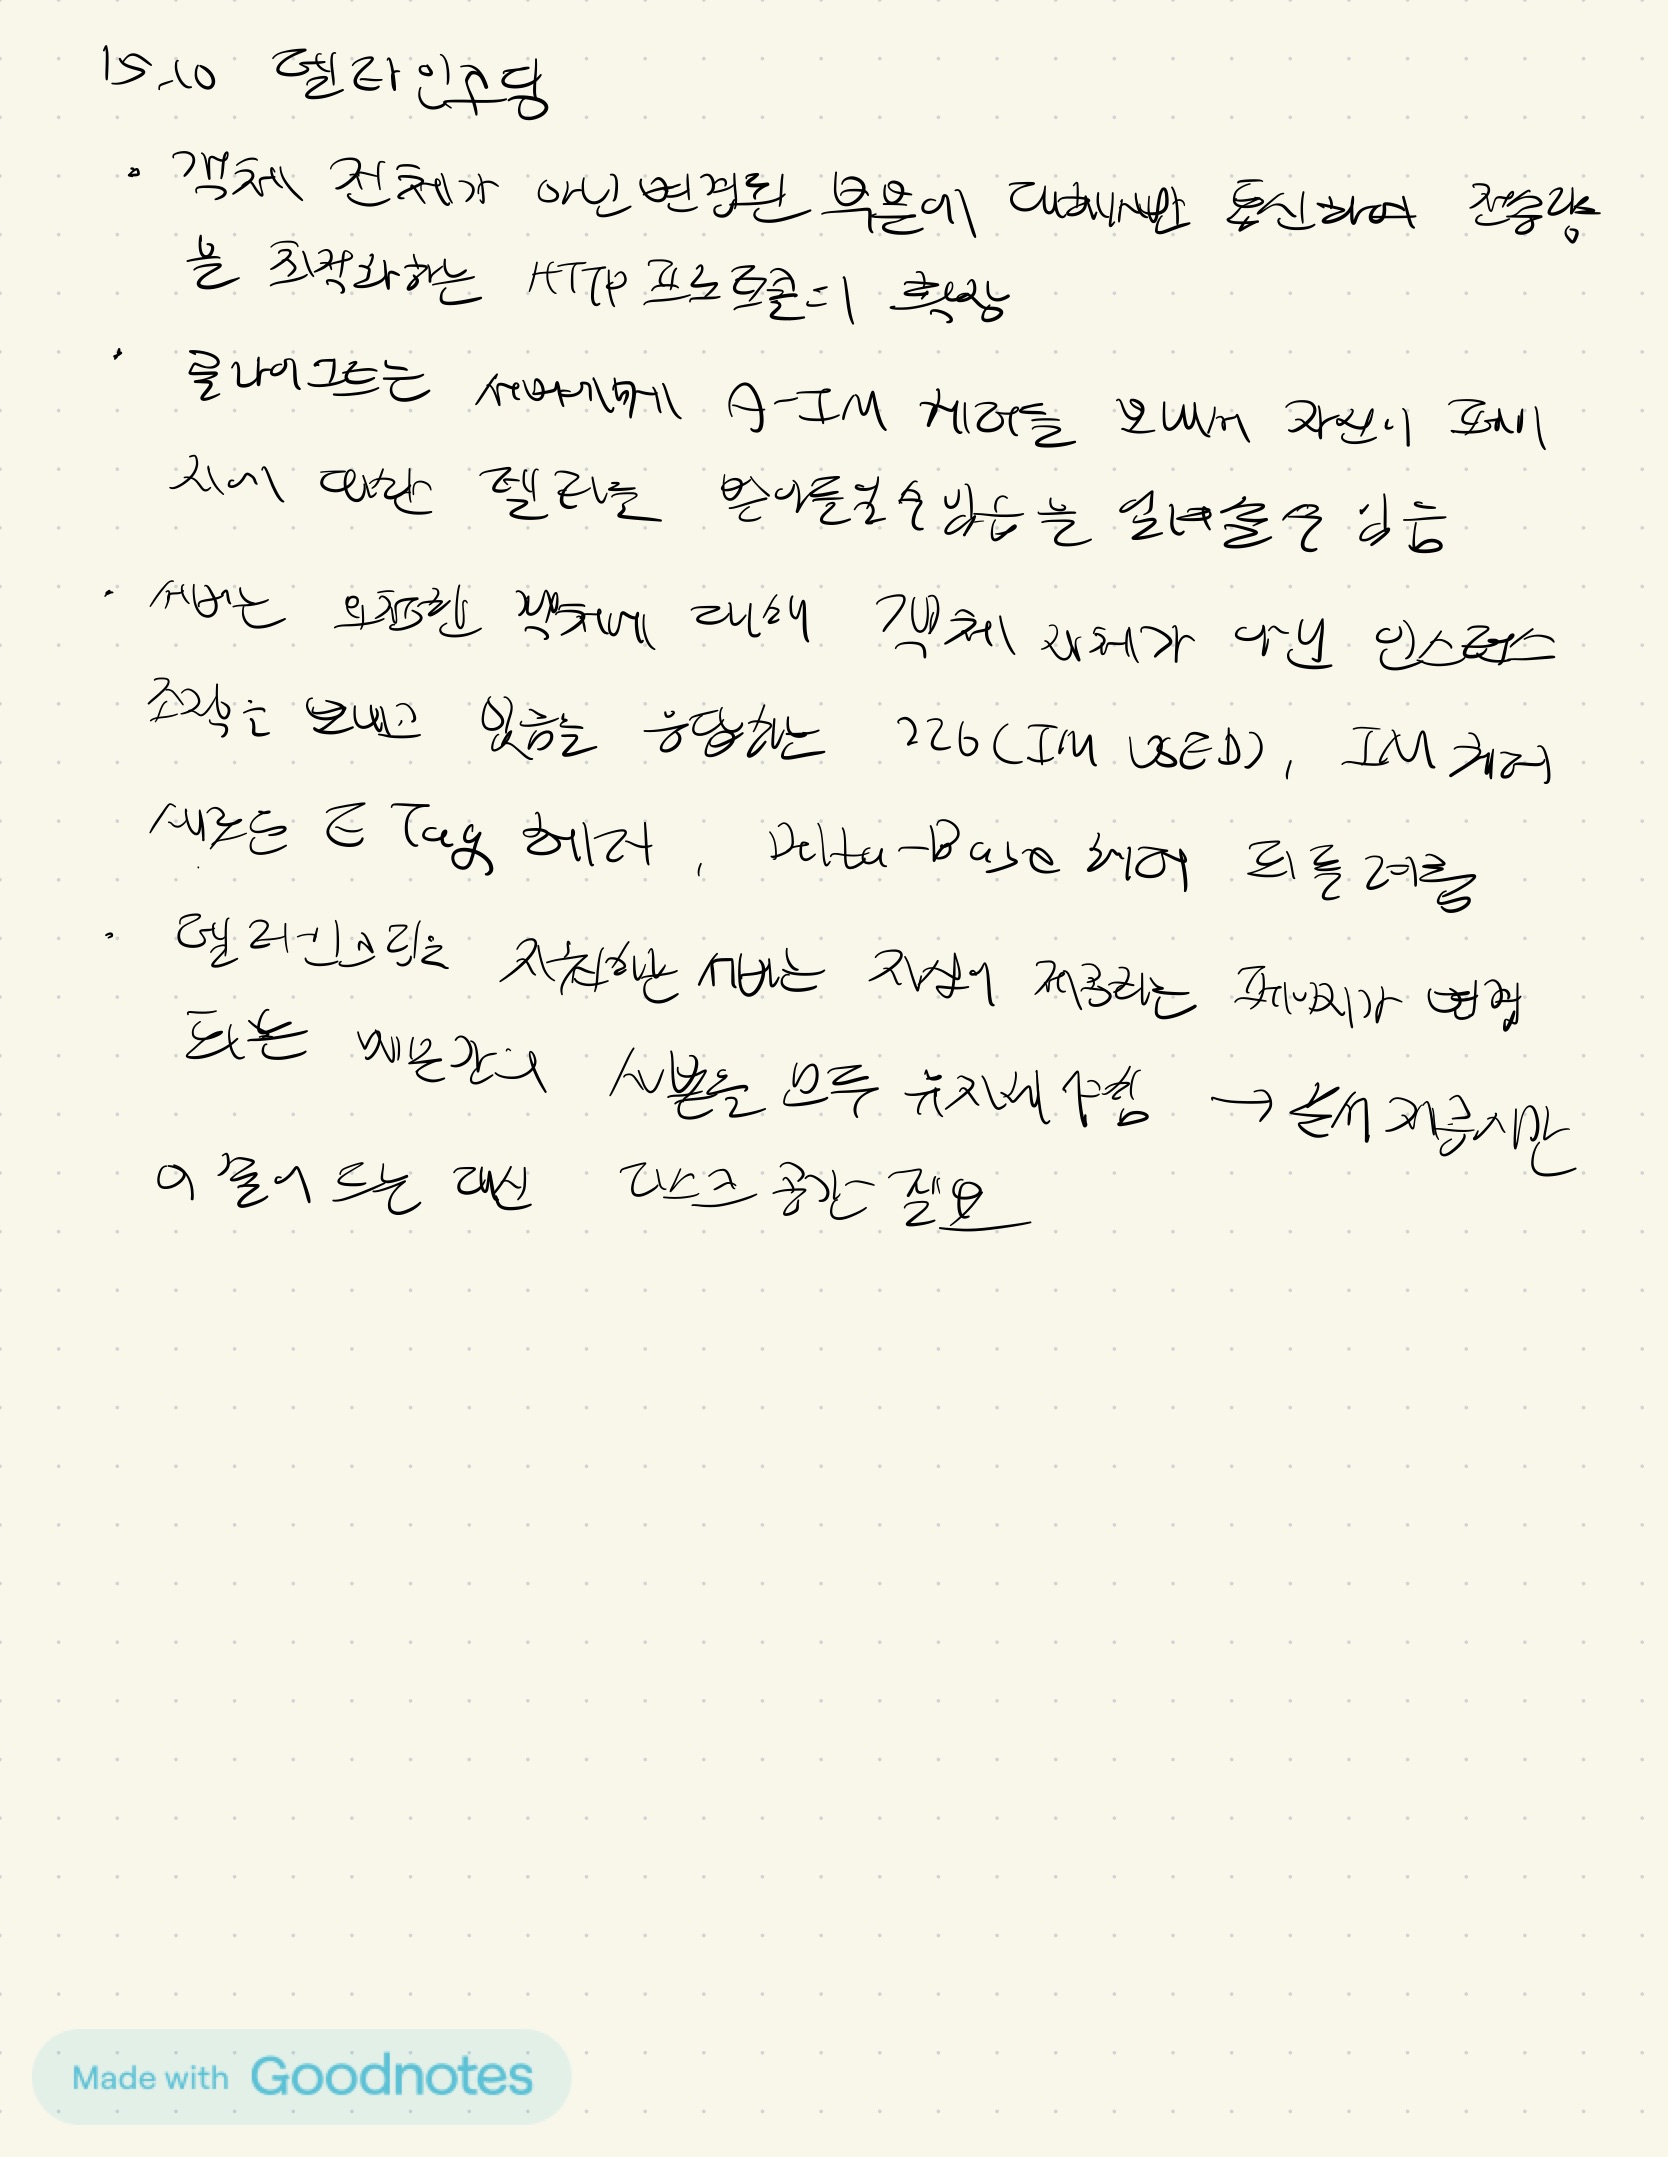 15.10 델타 인코딩
· 객체 전체가 아닌 변경된 부분에 대해서만 통신하여 전송량
을 최적화하는 HTTP 프로토콜의 확장
· 클라이언트는 서버에게 A-IM 헤더를 보내서 자신이 페이
지에 대한 델타를 받아들일 수 있음을 알려줄 수 있음
· 서버는 요청한 객체에 대해 객체 자체가 아닌 인스턴스
조작을 보내고 있음을 응답하는 226(IM USED), IM 헤더
새로운 ETag 헤더, Delta-Base 헤더 되돌려줌
· 델타 인코딩을 지원하는 서버는 자신이 제공하는 페이지가 변경
되는 매 순간의 사본을 모두 유지해야함 → 문서 제공시간
이 줄어드는 대신 디스크 공간 필요
Made with Goodnotes